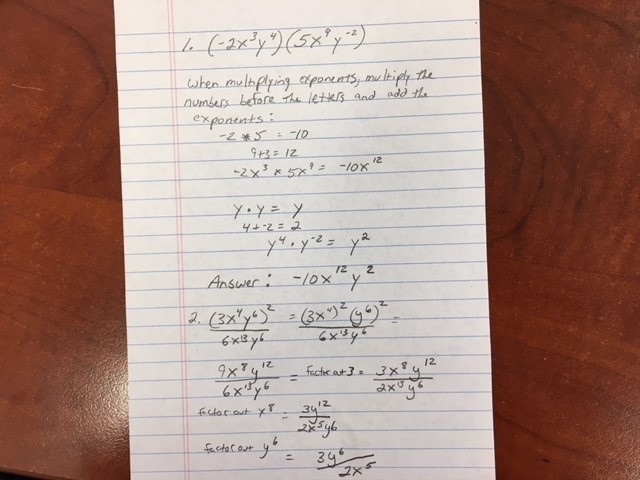 1. (-2x³y⁴)(5x⁹y⁻²)
When multiplying exponents, multiply the
numbers before the letters and add the
exponents:
-2 * 5 = -10
9+3 = 12
-2x³ * 5x⁹ = -10x¹²
y · y = y
4 + -2 = 2
y⁴ · y⁻² = y²
Answer: -10x¹² y²
2. (3x⁴y⁶)² / 6x¹³y⁶ = (3x⁴)² (y⁶)² / 6x¹³y⁶ =
9x⁸y¹² / 6x¹³y⁶ = factor out 3 = 3x⁸y¹² / 2x¹³y⁶
factor out x⁸ = 3y¹² / 2x⁵y⁶
factor out y⁶ = 3y⁶ / 2x⁵